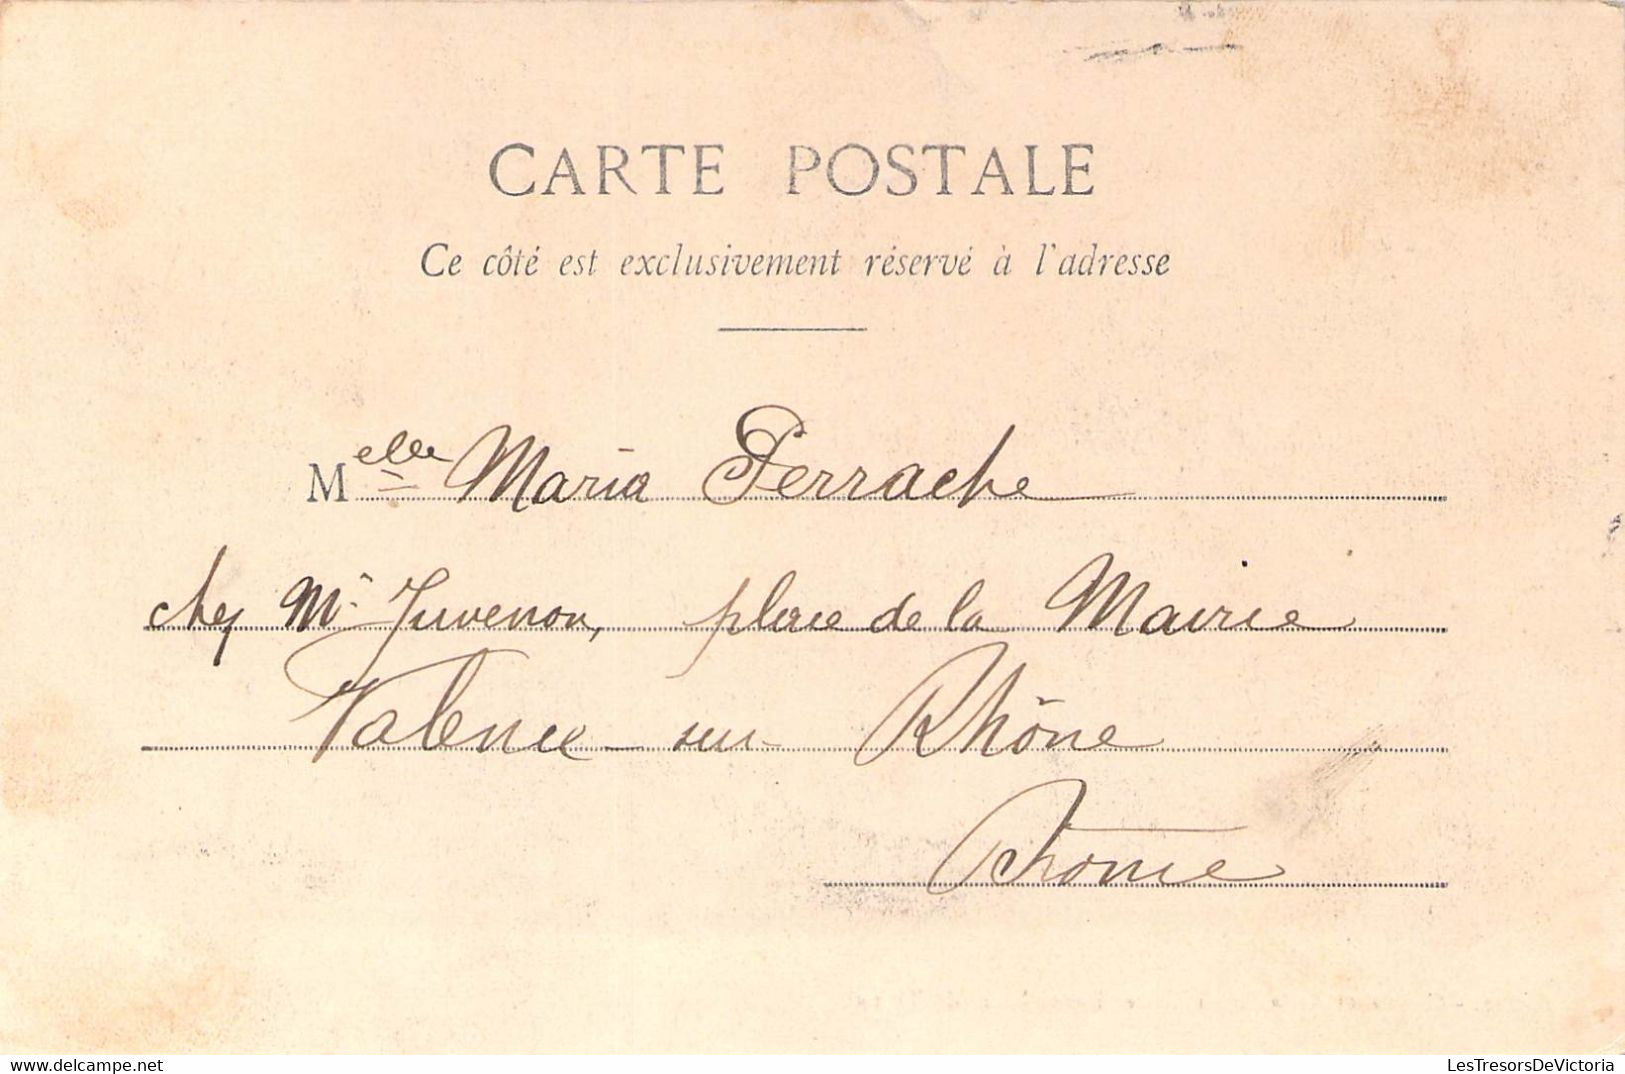 CARTE POSTALE
Ce côté est exclusivement réservé à l'adresse
Melle Maria Perrache
chez Mr Juvenon, place de la Mairie
Valence sur Rhône
Drôme
LesTresorsDeVictoria